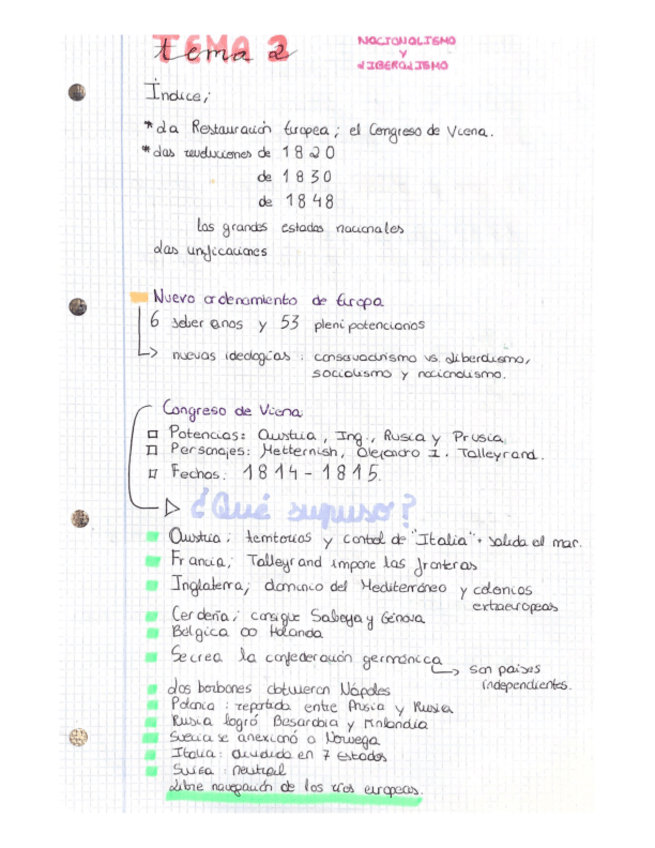 TEMA 2
tema 2
NACIONALISMO
Y
LIBERALISMO
Índice;
* La Restauración Europea; el Congreso de Viena.
* Las revoluciones de 1820
de 1830
de 1848
Los grandes estados nacionales
Las unificaciones
Nuevo ordenamiento de Europa
6 soberanos y 53 plenipotenciarios
nuevas ideologías: conservadurismo vs. liberalismo,
socialismo y nacionalismo.
Congreso de Viena
Potencias: Austria, Ing., Rusia y Prusia
Personajes: Metternish, Alejandro I. Talleyrand.
Fechas: 1814-1815.
¿Qué supuso?
Austria; territorios y control de "Italia" + salida al mar.
Francia; Talleyrand impone las fronteras
Inglaterra; dominio del Mediterráneo y colonias
extraeuropeas
Cerdeña; consigue Saboya y Génova
Bélgica ∞ Holanda
Se crea la confederación germánica
son países
independientes.
Los borbones obtuvieron Nápoles
Polonia: repartida entre Prusia y Rusia
Rusia logró Besarabia y Finlandia
Suecia se anexionó a Noruega
Italia: dividida en 7 estados
Suiza: neutral
Libre navegación de los ríos europeos.